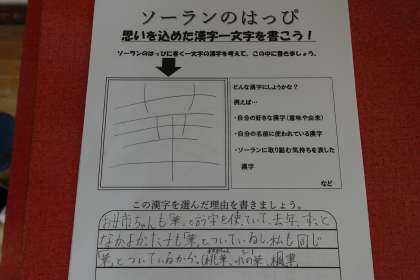 ソーランのはっぴ
思いを込めた漢字一文字を書こう！
ソーランのはっぴに書く一文字の漢字を考えて、この中に書きましょう。
華
どんな漢字にしようかな？
例えば…
・自分の好きな漢字（意味や由来）
・自分の名前に使われている漢字
・ソーランに取り組む気持ちを表した
漢字
など
この漢字を選んだ理由を書きましょう。
お姉ちゃんも「華」と言う字を使っていて、去年、ずっと
なかよかった子も「華」とついているし、私も同じ
「華」とついているから。